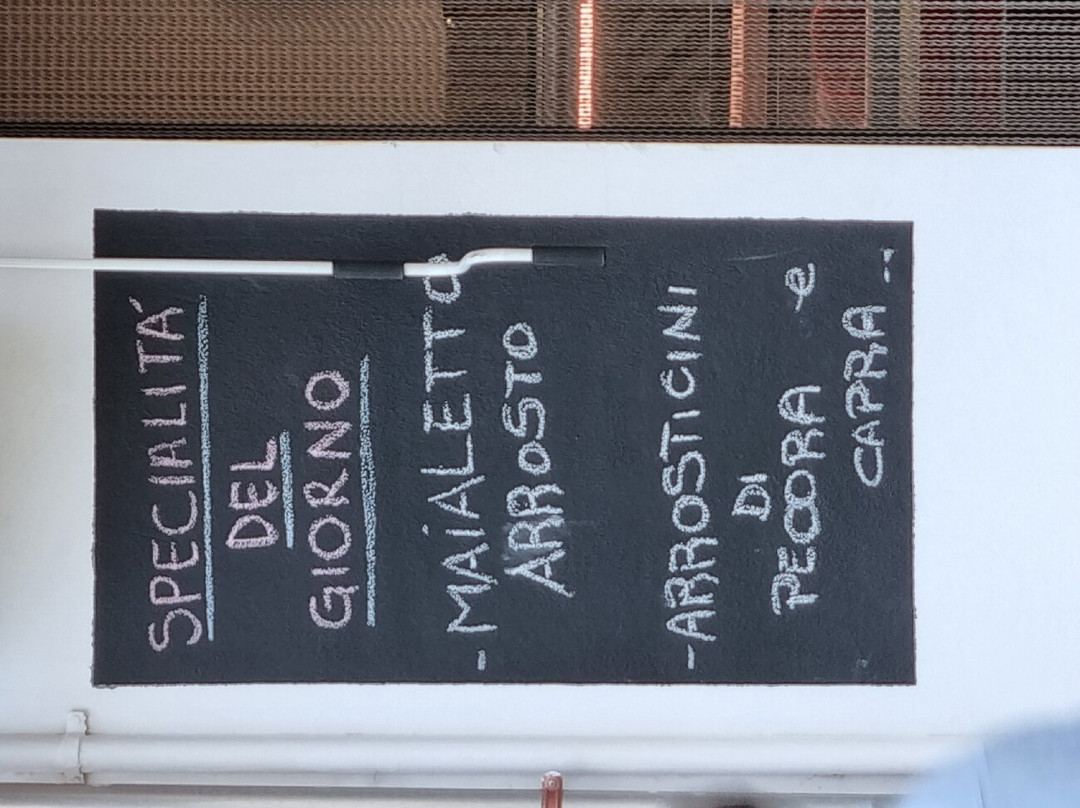 SPECIALITÀ
DEL
GIORNO
- MAiALETTO
ARROSTO
- ARROSTICINI
DI
PECORA e
CAPRA --